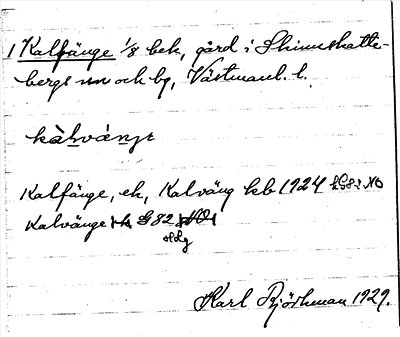 1 Kalfänge 1/8 bek, gård i Skinnskatte-
bergs sn och bg, Västmanl. l.
kàlvàŋə
Kalfänge, ek, Kalväng kb 1924 hG82 NO
Kalvänge G82
Karl Björkman 1929.